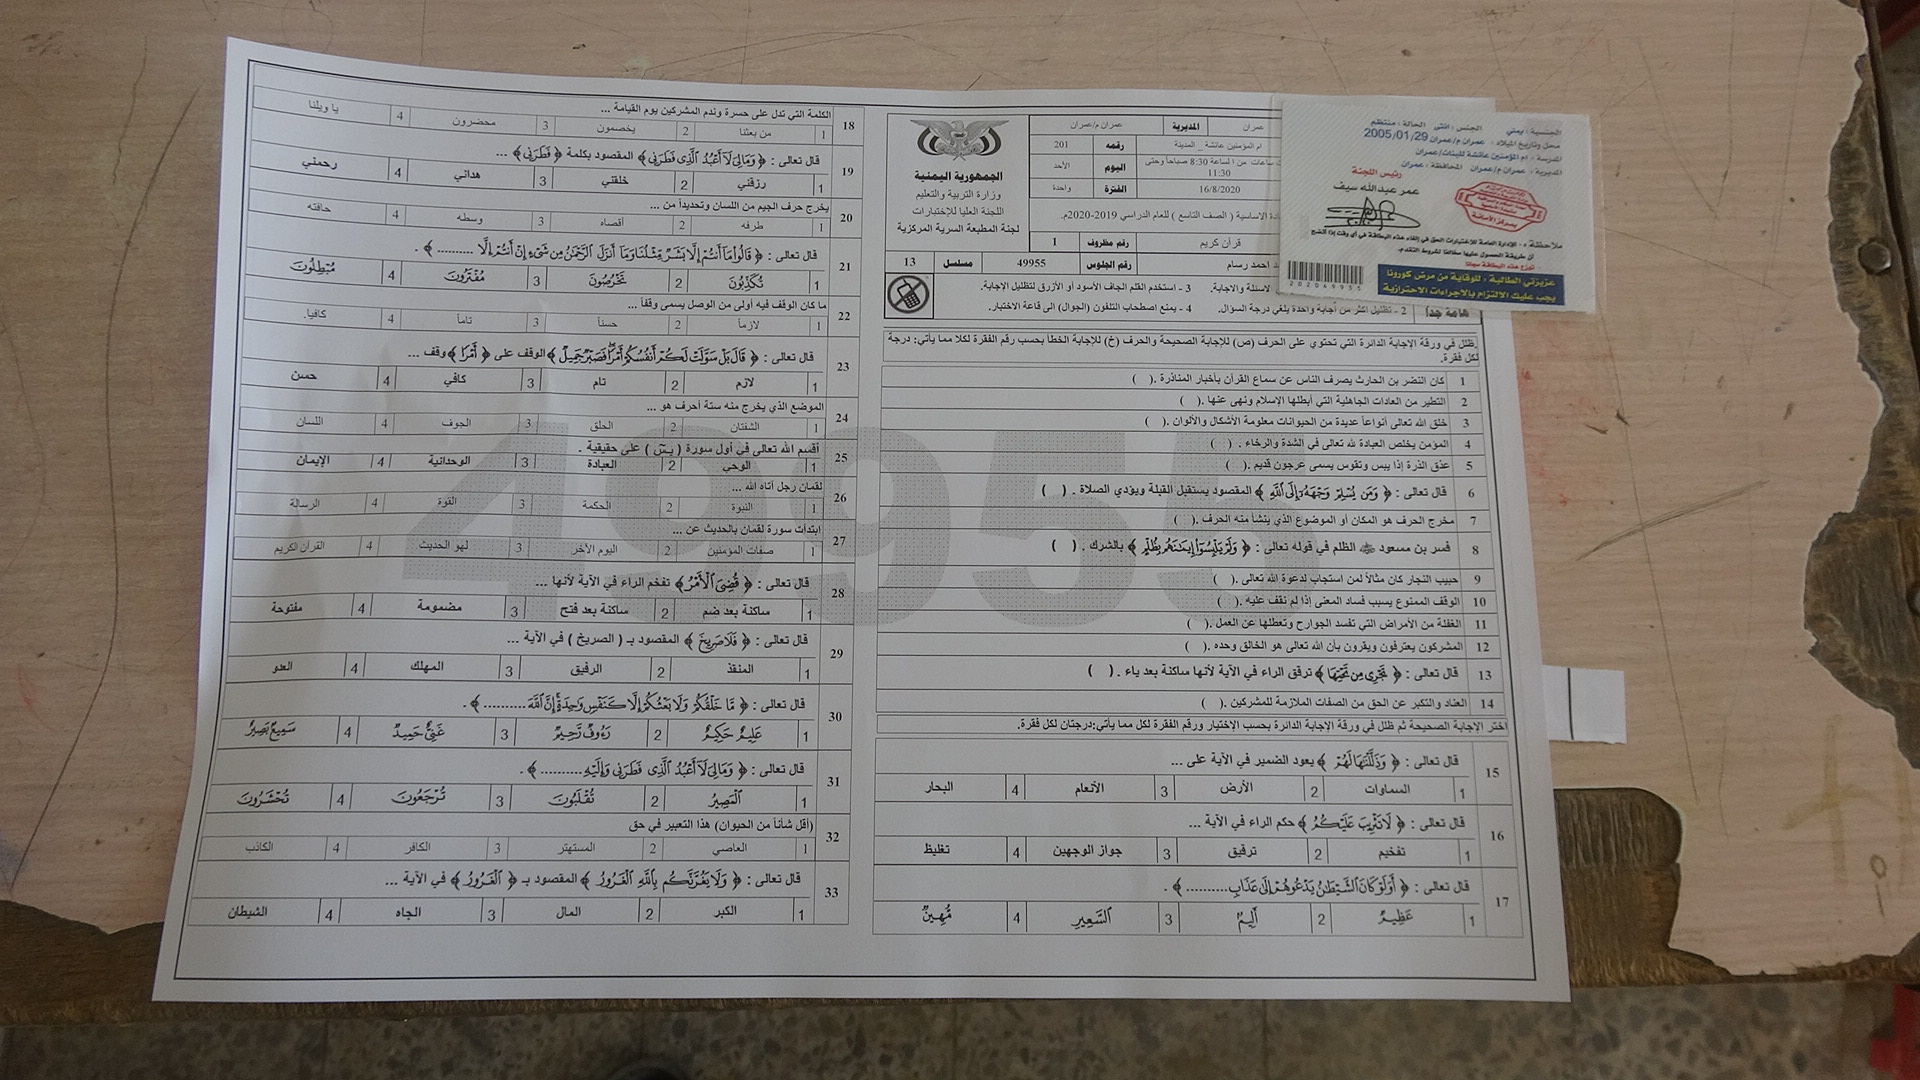 الجمهورية اليمنية
وزارة التربية والتعليم
اللجنة العليا للاختبارات
لجنة المطبعة السرية المركزية
عمران المديرية عمران م/عمران
ام المؤمنين عائشة _ المدينة رقمه 201
ساعات من الساعة 8:30 صباحاً وحتى 11:30 اليوم الأحد
16/8/2020 الفترة واحدة
الاساسية ( الصف التاسع ) للعام الدراسي 2019-2020م.
قرآن كريم رقم مظروف 1
احمد رسام رقم الجلوس 49955 مسلسل 13
الاسئلة والاجابة. 3 - استخدم القلم الجاف الأسود أو الأزرق لتظليل الإجابة.
هامة جداً 2 - تظليل اكثر من أجابة واحدة يلغي درجة السؤال. 4 - يمنع اصطحاب التلفون (الجوال) الى قاعة الاختبار.
الجنسية : يمني الجنس : أنثى الحالة : منتظم
محل وتاريخ الميلاد : عمران م/عمران 2005/01/29
المدرسة : ام المؤمنين عائشة للبنات/عمران
المديرية : عمران م/عمران المحافظة : عمران
رئيس اللجنة
عمر عبدالله سيف
ملاحظة : - الإدارة العامة للاختبارات الحق في إلغاء هذه البطاقة في أي وقت إذا اتضح
أن طريقة الحصول عليها مخالفاً لشروط التقدم.
توزع هذه البطاقة مجانا
202049955
عزيزتي الطالبة : للوقاية من مرض كورونا
يجب عليك الالتزام بالاجراءات الاحترازية
ظلل في ورقة الإجابة الدائرة التي تحتوي على الحرف (ص) للإجابة الصحيحة والحرف (خ) للإجابة الخطأ بحسب رقم الفقرة لكلا مما يأتي: درجة
لكل فقرة.
1 كان النضر بن الحارث يصرف الناس عن سماع القرآن بأخبار المناذرة .( )
2 التطير من العادات الجاهلية التي أبطلها الإسلام ونهى عنها .( )
3 خلق الله تعالى أنواعاً عديدة من الحيوانات معلومة الأشكال والألوان .( )
4 المؤمن يخلص العبادة لله تعالى في الشدة والرخاء . ( )
5 عذق الذرة إذا يبس وتقوس يسمى عرجون قديم .( )
6 قال تعالى : ﴿ وَمَن يُسْلِمْ وَجْهَهُ إِلَى اللَّهِ ﴾ المقصود يستقبل القبلة ويؤدي الصلاة . ( )
7 مخرج الحرف هو المكان أو الموضوع الذي ينشأ منه الحرف .( )
8 فسر بن مسعود ﷺ الظلم في قوله تعالى : ﴿ وَلَمْ يَلْبِسُوا إِيمَانَهُم بِظُلْمٍ ﴾ بالشرك . ( )
9 حبيب النجار كان مثالاً لمن استجاب لدعوة الله تعالى .( )
10 الوقف الممنوع يسبب فساد المعنى إذا لم نقف عليه .( )
11 الغفلة من الأمراض التي تفسد الجوارح وتعطلها عن العمل .( )
12 المشركون يعترفون ويقرون بأن الله تعالى هو الخالق وحده .( )
13 قال تعالى : ﴿ تَجْرِى مِن تَحْتِهَا ﴾ ترقق الراء في الآية لأنها ساكنة بعد ياء . ( )
14 العناد والتكبر عن الحق من الصفات الملازمة للمشركين .( )
اختر الإجابة الصحيحة ثم ظلل في ورقة الإجابة الدائرة بحسب الإختيار ورقم الفقرة لكل مما يأتي:درجتان لكل فقرة.
15 قال تعالى : ﴿ وَذَلَّلْنَاهَا لَهُمْ ﴾ يعود الضمير في الآية على ...
1 السماوات 2 الأرض 3 الأنعام 4 البحار
16 قال تعالى : ﴿ لَا تَثْرِيبَ عَلَيْكُمُ ﴾ حكم الراء في الآية ...
1 تفخيم 2 ترقيق 3 جواز الوجهين 4 تغليظ
17 قال تعالى : ﴿ أَوَلَوْ كَانَ الشَّيْطَانُ يَدْعُوهُمْ إِلَى عَذَابِ .......... ﴾ .
1 عَظِيمٌ 2 أَلِيمٌ 3 السَّعِيرِ 4 مُّهِينٌ
18 الكلمة التي تدل على حسرة وندم المشركين يوم القيامة ...
1 من بعثنا 2 يخصمون 3 محضرون 4 يا ويلنا
19 قال تعالى : ﴿ وَمَا لِىَ لَا أَعْبُدُ الَّذِى فَطَرَنِى ﴾ المقصود بكلمة ﴿ فَطَرَنِى ﴾ ...
1 رزقني 2 خلقني 3 هداني 4 رحمني
20 يخرج حرف الجيم من اللسان وتحديداً من ...
1 طرفه 2 أقصاه 3 وسطه 4 حافته
21 قال تعالى : ﴿ قَالُوا مَا أَنتُمْ إِلَّا بَشَرٌ مِّثْلُنَا وَمَا أَنزَلَ الرَّحْمَٰنُ مِن شَىْءٍ إِنْ أَنتُمْ إِلَّا .......... ﴾ .
1 تَكْذِبُونَ 2 تَخْرُصُونَ 3 مُفْتَرُونَ 4 مُبْطِلُونَ
22 ما كان الوقف فيه أولى من الوصل يسمى وقفاً ...
1 لازماً 2 حسناً 3 تاماً 4 كافيا.
23 قال تعالى : ﴿ قَالَ بَلْ سَوَّلَتْ لَكُمْ أَنفُسُكُمْ أَمْرًا فَصَبْرٌ جَمِيلٌ ﴾ الوقف على ﴿ أَمْرًا ﴾ وقف ...
1 لازم 2 تام 3 كافي 4 حسن
24 الموضع الذي يخرج منه ستة أحرف هو ...
1 الشفتان 2 الحلق 3 الجوف 4 اللسان
25 أقسم الله تعالى في أول سورة ( يسٓ ) على حقيقية .
1 الوحي 2 العبادة 3 الوحدانية 4 الإيمان
26 لقمان رجل أتاه الله ...
1 النبوة 2 الحكمة 3 القوة 4 الرسالة
27 ابتدأت سورة لقمان بالحديث عن ...
1 صفات المؤمنين 2 اليوم الآخر 3 لهو الحديث 4 القرآن الكريم
28 قال تعالى : ﴿ قُضِىَ الْأَمْرُ ﴾ تفخم الراء في الآية لأنها ...
1 ساكنة بعد ضم 2 ساكنة بعد فتح 3 مضمومة 4 مفتوحة
29 قال تعالى : ﴿ فَلَا صَرِيخَ ﴾ المقصود بـ ( الصريخ ) في الآية ...
1 المنقذ 2 الرفيق 3 المهلك 4 العدو
30 قال تعالى : ﴿ مَّا خَلْقُكُمْ وَلَا بَعْثُكُمْ إِلَّا كَنَفْسٍ وَاحِدَةٍ إِنَّ اللَّهَ .......... ﴾ .
1 عَلِيمٌ حَكِيمٌ 2 رَءُوفٌ رَّحِيمٌ 3 غَنِىٌّ حَمِيدٌ 4 سَمِيعٌ بَصِيرٌ
31 قال تعالى : ﴿ وَمَا لِىَ لَا أَعْبُدُ الَّذِى فَطَرَنِى وَإِلَيْهِ .......... ﴾ .
1 الْمَصِيرُ 2 تُقْلَبُونَ 3 تُرْجَعُونَ 4 تُحْشَرُونَ
32 (أقل شأناً من الحيوان) هذا التعبير في حق
1 العاصي 2 المستهتر 3 الكافر 4 الكاذب
33 قال تعالى : ﴿ وَلَا يَغُرَّنَّكُم بِاللَّهِ الْغَرُورُ ﴾ المقصود بـ ﴿ الْغَرُورُ ﴾ في الآية ...
1 الكبر 2 المال 3 الجاه 4 الشيطان
49955